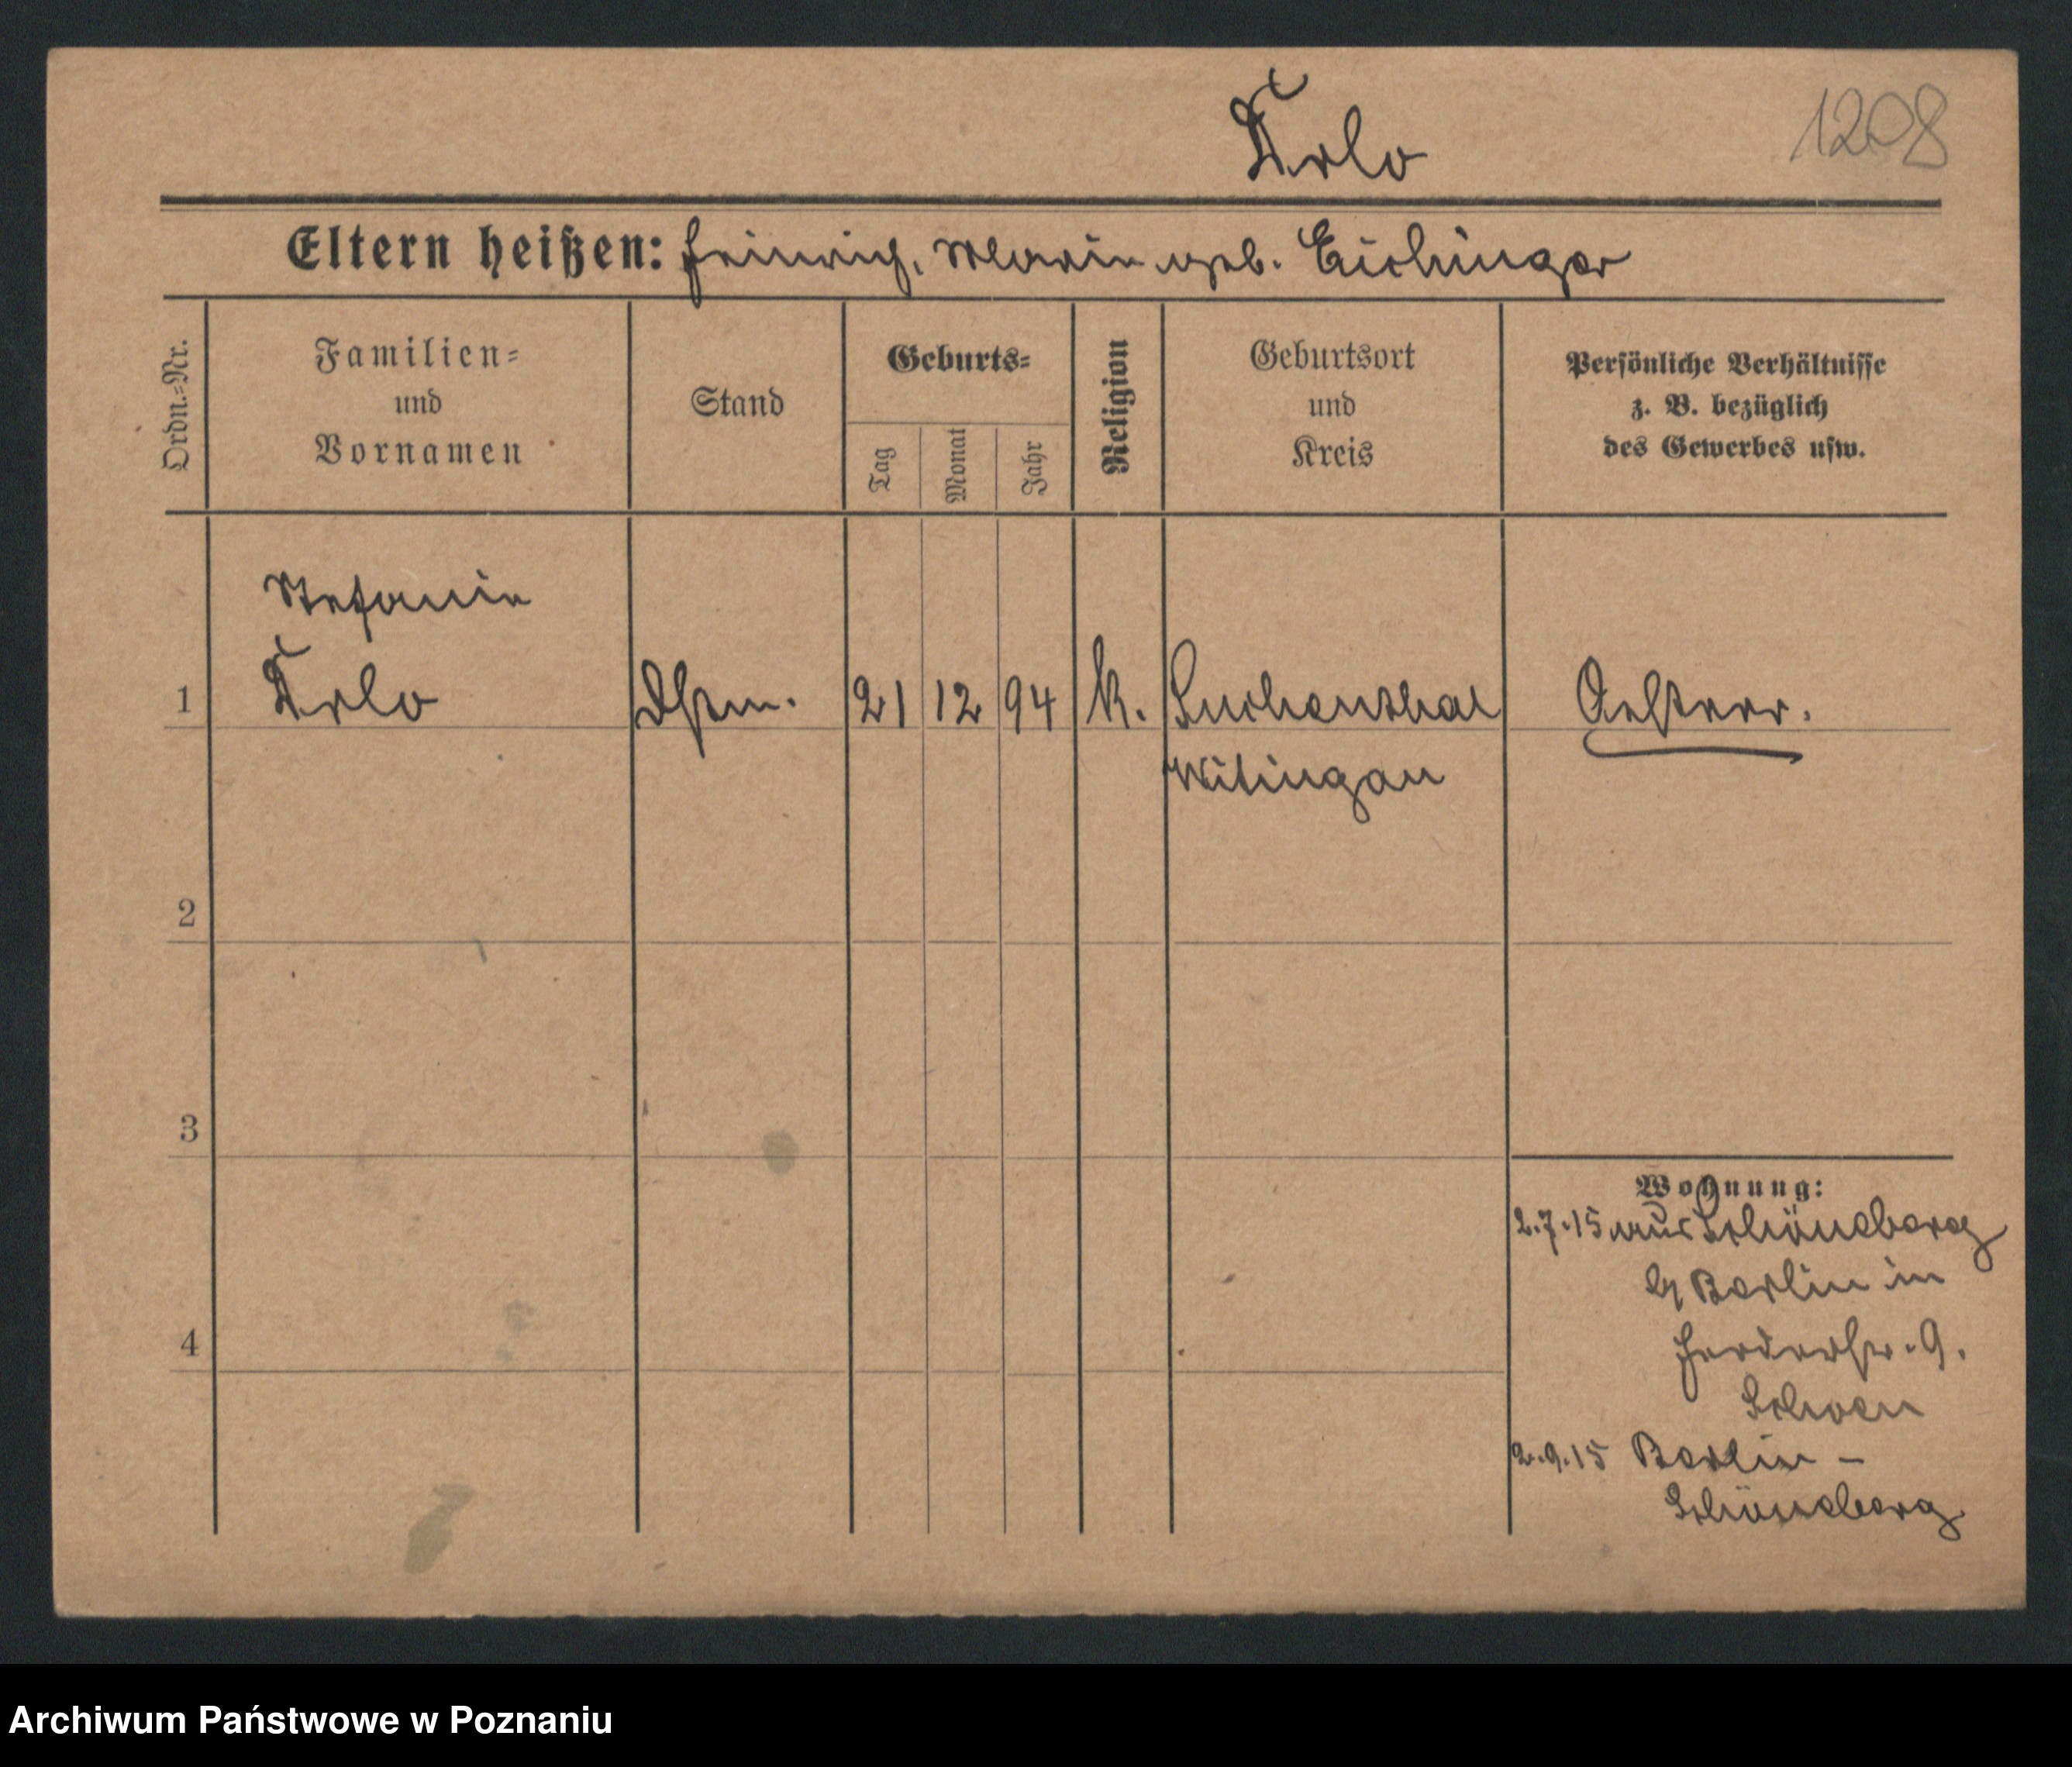 Krlo
1208
Eltern heißen: Heinrich, Marie geb. Eichinger
Ordn.-Nr.
Familien-
und
Vornamen
Stand
Geburts-
Tag
Monat
Jahr
Religion
Geburtsort
und
Kreis
Persönliche Verhältnisse
z. B. bezüglich
des Gewerbes usw.
Stefanie
1 Krlo 21 12 94 k. Suchenthal Oesterr.
Witingau
2
3
4
Wohnung:
2.7.15 aus Schöneberg
b/ Berlin in
Herderstr. 9.
2.9.15 Berlin -
Schöneberg
Archiwum Państwowe w Poznaniu